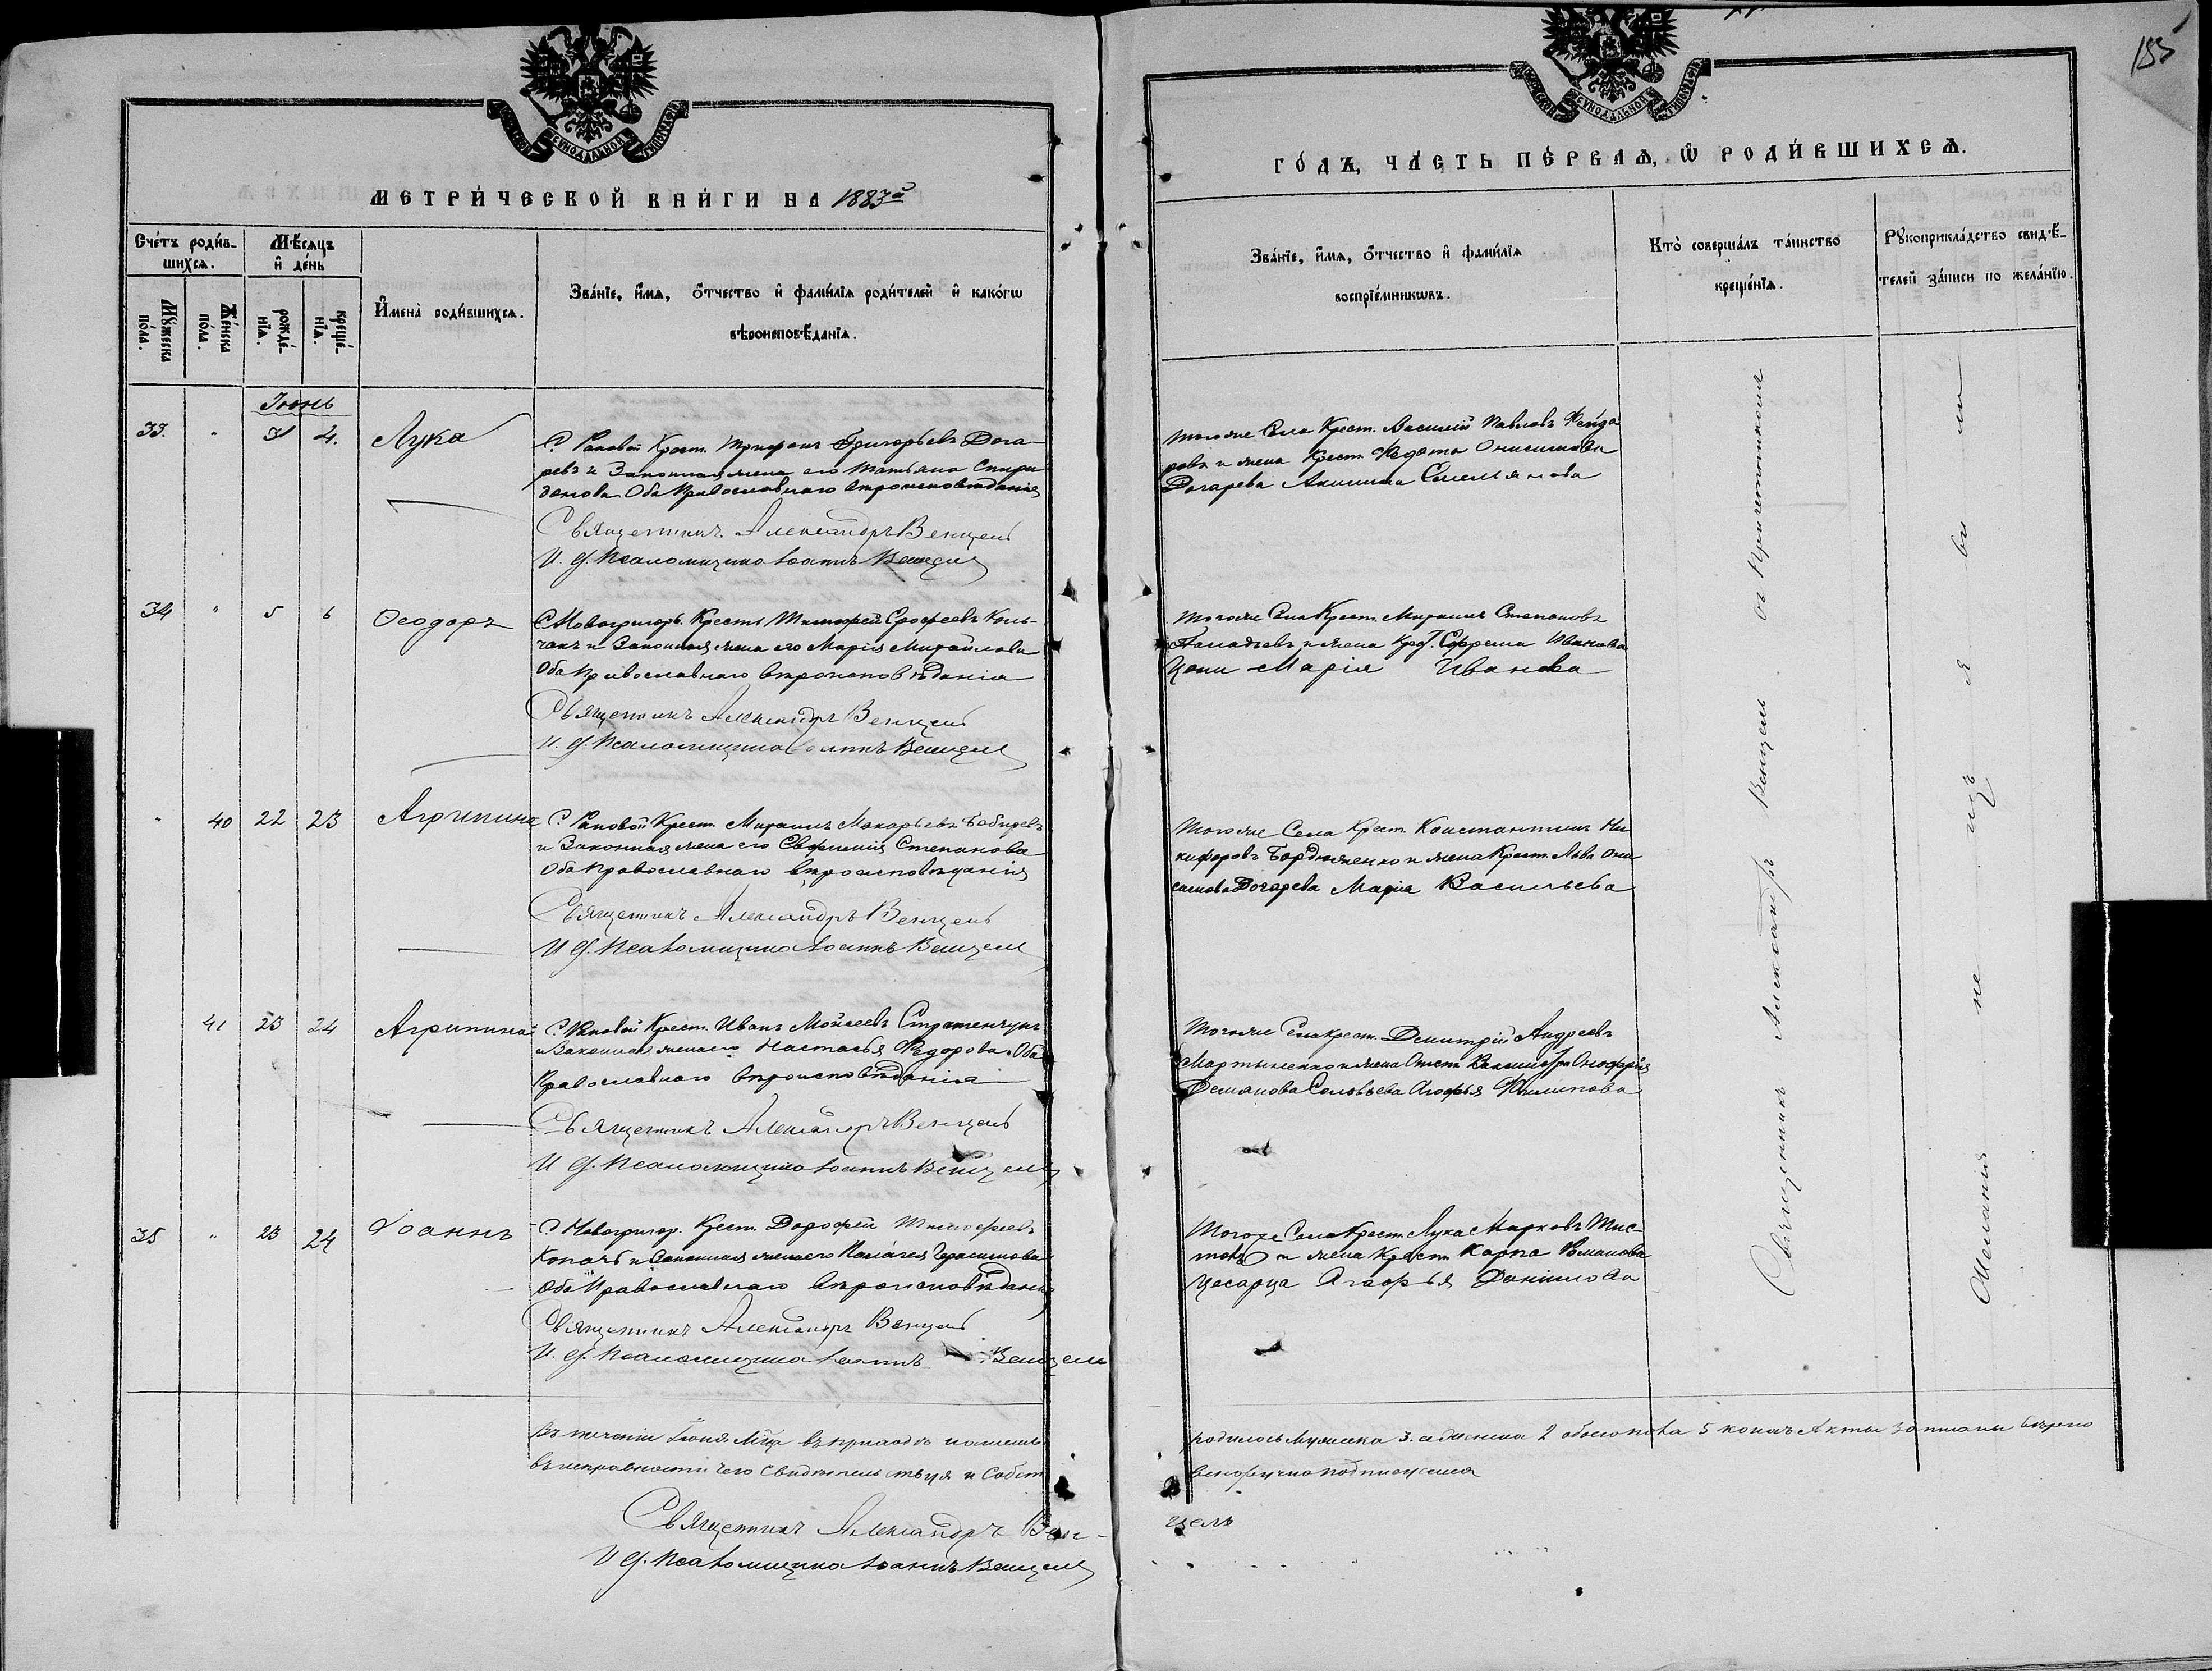 185
МЕТРИ́ЧЕСКОЙ КНИ́ГИ НА 1883й
ГО́ДЪ, ЧА́СТЬ ПЕ́РВАѦ, Ѡ РОДИ́ВШИХСѦ.
Сче́тъ роди́в-
шихсѧ.
Мѣ́сѧцъ
и҆ де́нь
Му́жеска
по́ла.
Же́нска
по́ла.
рожде́-
нїѧ.
креще́-
нїѧ.
И҆мена̀ роди́вшихсѧ.
Зва́нїе, и҆́мѧ, ѻ҆́тчество и҆ фами́лїѧ роди́телей и҆ како́гѡ
вѣроисповѣ́данїѧ.
Зва́нїе, и҆́мѧ, ѻ҆́тчество и҆ фами́лїѧ
воспрїе́мникѡвъ.
Кто̀ соверша́лъ та́инство
креще́нїѧ.
Рꙋкоприкла́дство свидѣ́-
телей за́писи по жела́нїю.
Іюнь
33. " 4. Лука
С. Раковой Крест. Трифонъ Григорьевъ Дога-
ревъ и Законная жена его Татьяна Спири
донова Оба Православнаго вѣроисповѣданія
Священникъ Александръ Венцель
И. д. Псаломщика Іоаннъ Венцель
Тогоже Села Крест. Василій Павловъ
ровъ и жена Крест. Федота Онисимова
Догарева Акилина Емельянова
34 " 5 6 Ѳеодоръ
С Новогригор. Крест. Тимофей Ерофеевъ
и Законная жена его Марія Михайлова
Оба Православнаго вѣроисповѣданія
Священникъ Александръ Венцель
И. д. Псаломщика Іоаннъ Венцель
Тогоже Села Крест. Михаилъ Степановъ
и жена Крест. Ефрема Иванова
Марія Иванова
" 40 22 23 Агрипина
С. Раковой Крест. Михаилъ Макарьевъ
и Законная жена его Евфимія Степанова
Оба Православнаго вѣроисповѣданія
Священникъ Александръ Венцель
И д. Псаломщика Іоаннъ Венцель
Тогоже Села Крест. Константинъ Ни
кифоровъ и жена Крест. Льва Они
симова Догарева Марія Васильева
41 23 24 Агрипина
С. Раковой Крест. Иванъ Моисеевъ
и Законная жена его Настасья Федорова Оба
Православнаго вѣроисповѣданія
Священникъ Александръ Венцель
И д. Псаломщика Іоаннъ Венцель
Тогоже Села Крест. Димитрій Андреевъ
Мартыненко и жена Онофрія
Демянова Соловьева Агофья Филипова
35 " 23 24 Іоаннъ
С. Новогригор. Крест. Дорофей Тимофеевъ
Копачъ и Законная жена его Палагея Герасимова
Оба Православнаго вѣроисповѣданія
Священникъ Александръ Венцель
И. д. Псаломщика Іоаннъ Венцель
Тогоже Села Крест. Лука Марковъ
и жена Крест. Карпа Романова
Цесарца Агафья Данилова
Священникъ Александръ Венцель съ Причетникомъ
Желаній не изъявили
Въ теченіи Іюня Мца въ приходѣ
родилось Мужеска 3. а Женска 2 обоего пола 5 коихъ Акты Записаны вѣрно
въ исправности чего свидѣтельствуя и Собст
венноручно подписуемся
Священникъ Александръ Вен-
цель
И д. Псаломщика Іоаннъ Венцель